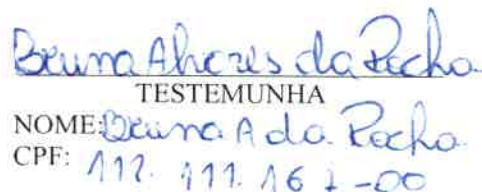 Bruna Alvares da Rocha
TESTEMUNHA
NOME: Bruna A da Rocha
CPF: 117. 111. 167-00